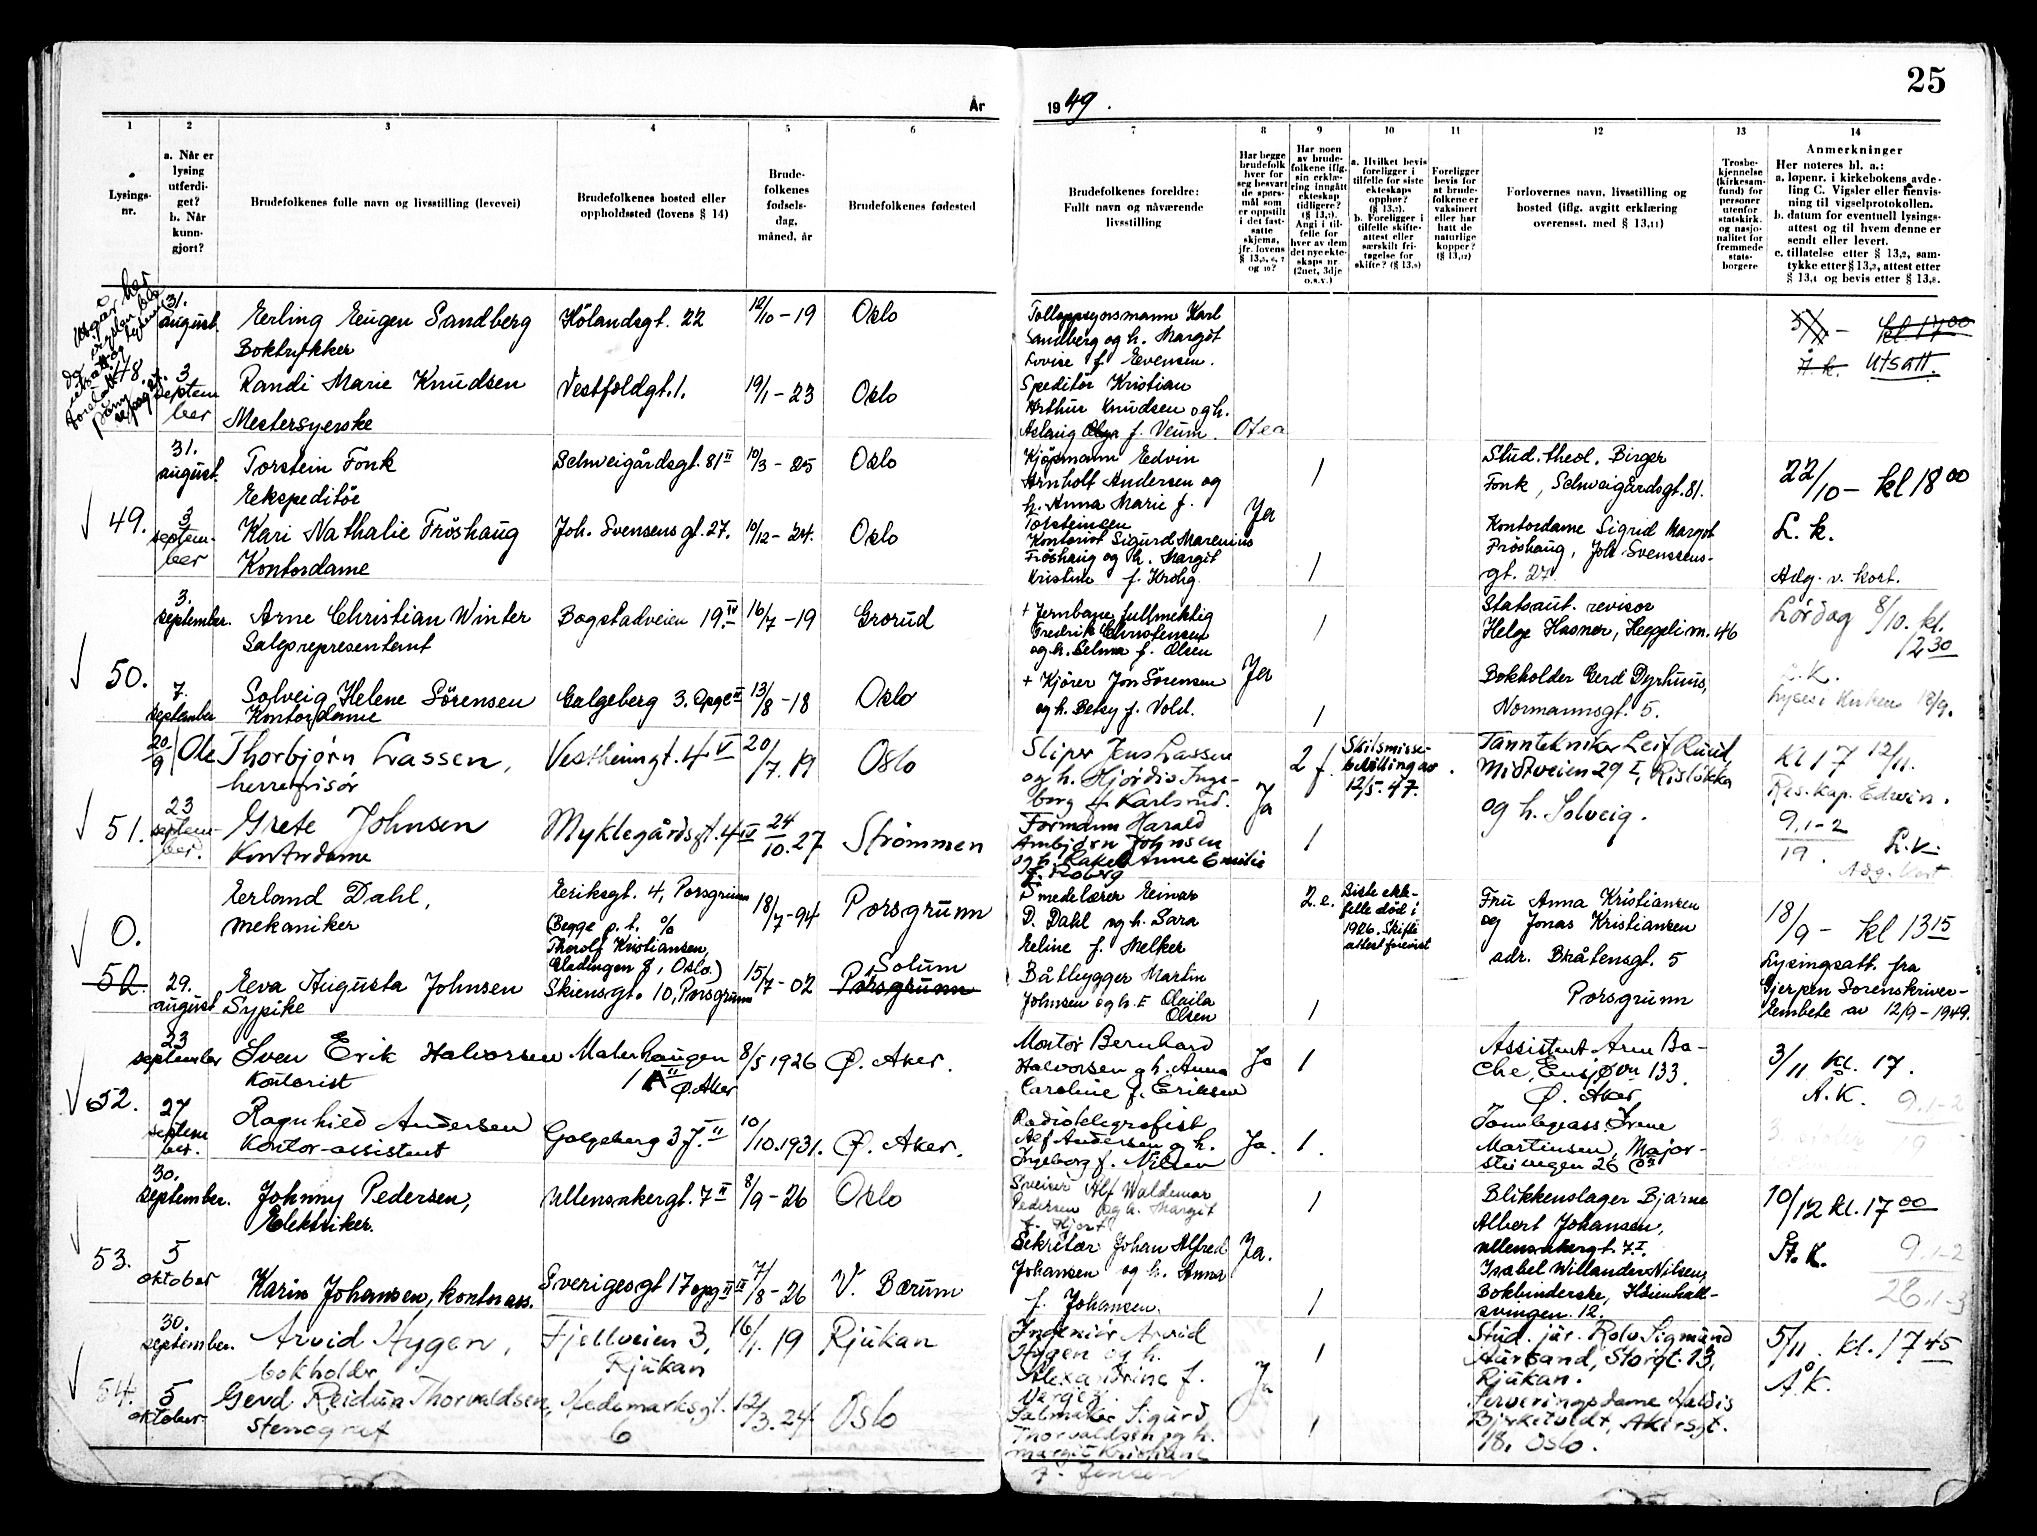 25
År
1949.
1
Lysings-
nr.
2
a. Når er
lysing
utferdi-
get?
b. Når
kunn-
gjort?
3
Brudefolkenes fulle navn og livsstilling (levevei)
4
Brudefolkenes bosted eller
oppholdssted (lovens § 14)
5
Brude-
folkenes
fødsels-
dag,
måned, år
6
Brudefolkenes fødested
7
Brudefolkenes foreldre:
Fullt navn og nåværende
livsstilling
8
Har begge
brudefolk
hver for
seg besvart
de spørs-
mål som
er oppstilt
i det fast-
satte
skjema,
jfr. lovens
9
Har noen
av brude-
folkene iflg.
sin erklæ-
ring inngått
ekteskap
tidligere?
Angi i til-
felle for
hver av dem
det nye ekte-
skaps nr
(2net, 3dje
o.s.v.)
10
a. Hvilket bevis
foreligger i
tilfelle for siste
ekteskaps
opphør?
b. Foreligger i
tilfelle skifte-
attest eller
særskilt fri-
tagelse for
skifte?
11
Foreligger
bevis for
at brude-
folkene er
vaksinert
eller har
hatt de
naturlige
kopper?
12
Forlovernes navn, livsstilling og
bosted (iflg. avgitt erklæring
overensst. med § 13,11)
13
Trosbe-
kjennelse
(kirkesam-
fund) for
personer
utenfor
statskirk.
og nasjo-
nalitet for
fremmede
stats-
borgere
14
Anmerkninger
Her noteres bl. a.:
a. løpenr. i kirkebokens avde-
ling C. Vigsler eller henvis-
ning til vigselprotokollen.
b. datum for eventuell lysings-
attest og til hvem denne er
sendt eller levert.
c. tillatelse etter § 13,2, sam-
tykke etter § 13,3, attest etter
§ 13,4 og bevis etter § 13,8.
31.
august
Erling Eugen Sandberg
Boktrykker
Hölandsgt. 22
12/10 - 19
Oslo
Tolloppsynsmann Karl
Sandberg og h. Margit
Lovise f. Evensen.
kl 17 00
Utsatt.
3
septem
ber
Randi Marie Knudsen
Mestersyerske
Vestfoldgt. 1.
19/1 - 23
Oslo
Speditör Kristian
Arthur Knudsen og h.
Aslaug Olga f. Veum.
31.
august.
Torstein Fonk
Ekspeditör
Schweigårdsgt. 81 II
10/3 - 25
Oslo
Kjöpmann Edvin
Arnholt Andersen og
h. Anna Marie f.
Torsteinsen
1
Stud. theol. Birger
Fonk, Schweigårdsgt. 81.
22/10 - kl 18 00
49.
3
septem-
ber
Kari Nathalie Fröshaug
Kontordame
Joh. Svensens gt. 27.
10/12 - 24.
Oslo
Kontorist Sigurd Marenius
Fröshaug og h. Margit
Kristine f. Krohg
Ja
1
Kontordame Sigrid Margot
Fröshaug, Joh. Svensens-
gt. 27
L. k.
Adg. v. kort.
3.
september.
Arne Christian Winter
Salgsrepresentant
Bogstadveien 19. IV
16/7 - 19
Grorud
+ Jernbanefullmektig
Fredrik Christensen
og h. Selma f. Olsen
1
Statsaut. revisor
Helge Hasner, Heggelim. 46
Lördag 8/10. kl.
12 30
50.
7.
september
Solveig Helene Sörensen
Kontordame
Galgeberg 3. Opg. II
13/8 - 18
Oslo
+ Kjörer Jon Sörensen
og h. Betsy f. Vold.
Ja
1
Bokholder Gerd Dyrhuus,
Normannsgt. 5.
L. K.
Lyses i Kirken 18/9.
20/9
Ole Thorbjørn Lassen,
herrefrisør
Vestheimgt. 4 V
20/7. 19
Oslo
Sliper Jens Lassen
og h. Hjørdis Inge-
borg f. Karlsrud.
2 f.
Skilsmisse-
bevilling av
12/5-47.
Tanntekniker Leif Ruud,
Midtveien 29 I, Risløkka
og h. Solveig.
kl 17 12/11.
Res. kap. Edwin.
51.
23
septem-
ber.
Grete Johnsen
Kontordame
Myklegårdsgt. 4 IV
24/10. 27
Strömmen
Formann Harald
Ambjørn Johnsen
og h. Rakel Anne Emilie
f. Roberg
Ja
1
9.1-2
19.
L.k.
Adg. kort
Erland Dahl,
mekaniker
Eriksgt. 4, Porsgrunn
(Begge p. t. %
Thorolf Kristiansen,
Gladengen 8, Oslo.)
18/7 - 94
Porsgrunn
Smedelærer Einar
D. Dahl og h. Sara
Eline f. Melker
2. e.
Siste ekt-
felle död i
1926. Skifte
attest fremvist
Fru Anna Kristiansen
og Jonas Kristiansen
adr. Bråtensgt. 5
Porsgrunn
18/9 - kl 13 15
0.
52.
29.
august
Eva Augusta Johnsen
Sypike
Skiensgt. 10, Porsgrunn
15/7 - 02
Solum
Porsgrunn
Båtbygger Martin
Johnsen og h. E Olaila
Olsen
1
Lysingsatt. fra
Gjerpen Sorenskriver-
Embete av 12/9 - 1949.
23
september
Sven Erik Halvorsen
Kontorist
Malerhaugen
1 A II Ø. Aker
8/5 1926
Ø. Aker.
Montør Bernhard
Halvorsen og h. Anna
Caroline f. Eriksen
Ja
1
Assistent Arne Ba-
che, Ensjøvn 133.
Ø. Aker
3/11 kl. 17.
Å.K.
52.
27
septem
ber.
Ragnhild Andersen
Kontor-assistent
Galgeberg 3 J. II
10/10. 1931.
Ø. Aker.
Radiotelegrafist
Alf Andersen og h.
Ingeborg f. Nilsen
Ja.
1.
Tannlegeass. Irene
Martinsen, Major-
stuvegen 26
9.1-2
19
30.
september.
Johnny Pedersen,
Elektriker.
Ullensakergt. 7 II
8/9 - 26
Oslo
Sveiser Alf Waldemar
Pedersen og h. Margit
f. Hjort
1
Blikkenslager Bjarne
Albert Johansen,
Ullensakergt. 7 I.
10/12 kl. 17 00
53.
5
oktober
Karin Johansen, kontorass.
Sverigesgt 17 opg II III
7/8 - 26
V. Bærum
Sekretær Johan Alfred
Johansen og h. Anna
f. Johansen.
Ja.
1
Isabel Willander Nilsen,
Bokbinderske,
svingen 12.
Å. K.
9.1-2
26.1-3
30.
september.
Arvid Hygen,
bokholder
Fjellveien 3,
Rjukan
16/1. 19
Rjukan
Ingeniör Arvid
Hygen og h.
Alexandrine f.
1
Stud. jur. Rolv Sigmund
Aursand, Storgt. 13,
Rjukan.
5/11. kl. 17 45
Å.K.
54.
5
oktober
Gerd Reidun Thorvaldsen,
stenograf
Hedemarksgt.
6
12/3. 24
Oslo
Salmaker Sigurd
Thorvaldsen og h.
Margit Kristiane
f. Jensen
Ja
1
Serveringsdame Haldis
Bjerketvedt, Akersgt.
18. Oslo.